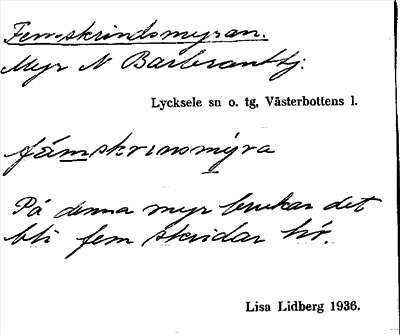 Femskrindsmyran.
Myr N Barbroantbj:
Lycksele sn o. tg, Västerbottens l.
fämskrinsmýra
På denna myr brukar det
bli fem skridar hö.
Lisa Lidberg 1936.